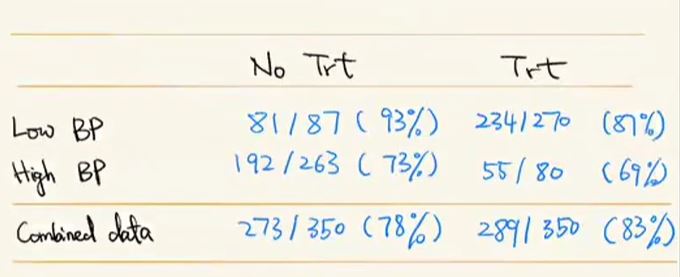 No Trt Trt
Low BP 81/87 (93%) 234/270 (87%)
High BP 192/263 (73%) 55/80 (69%)
Combined data 273/350 (78%) 289/350 (83%)